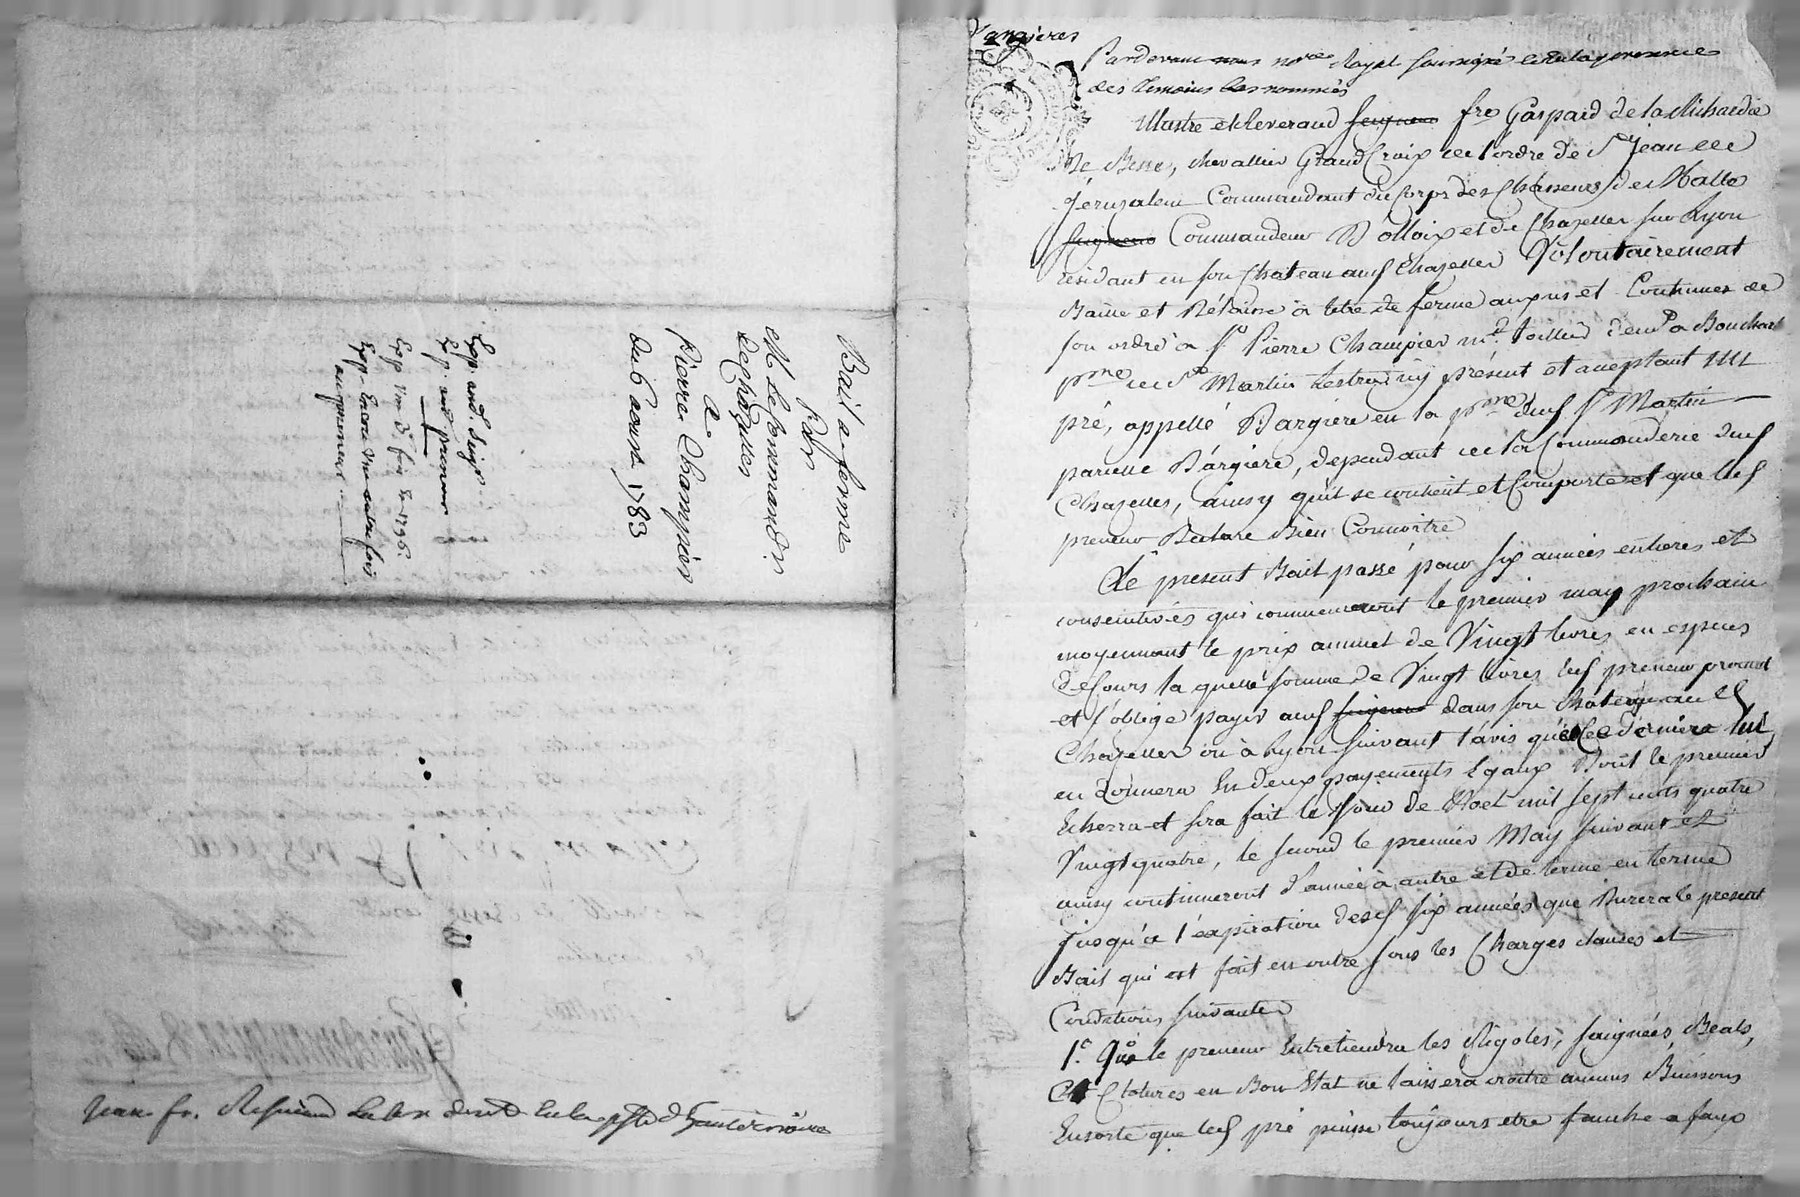 Bail a ferme
par
M. le Command.r
de Chazelles
a
Pierre Champier
du 6 aoust 1783
Exp. and. Seigr.
Exp. aud. preneur
Exp. Une 3e fois en 1796.
Exp. Encore une autre fois
au preneur
Jean fr. en la psse d
Vargieres
Pardevant nous nore Royal soussigné et en la presence
des temoins bas nommés
Illustre et Reverand seigneur fre Gaspard de la Richardie
De Besse, chevallier Grand Croix de l'ordre de St Jean de
Jerusalem Commandant du Corps des Chasseurs de Malte
seigneur Commandeur D'olloix et de Chazelles sur Lyon
résidant en son Chateau aud Chazelles Volontairement
Baille et Délaisse à titre de ferme aux us et Coutumes de
son ordre a Sr Pierre Champier md toillier demt a Bouchat
psse de St Martin Lestra icy présent et aceptant un
pré, appellé Bargiere en la psse dud St Martin
parcelle Bargiere, dependant de la Commanderie dud
Chazelles, ainsy qu'il se contient et Comporte et que led
preneur Declare Bien Connoitre
Le present Bail passé pour six années entieres et
consecutives qui commenceront le premier may prochain
moyennant le prix annuel de Vingt livres en especes
de Cours la quelle somme de Vingt livres led preneur promet
et s'oblige payer aud seigneur dans son Château aud
Chazelles ou à Lyon suivant l'avis que ce dernier lui
en donnera En deux payements Egaux Dont le premier
Echerra et sera fait le jour de Noel mil sept cents quatre
Vingt quatre, le second le premier May suivant et
ainsy continueront d'année à autre et de terme en terme
jusqu'a l'expiration desd six années que Durera le present
Bail qui est fait en outre sous les Charges clauses et
Conditions suivantes
1.e Que le preneur Entretiendra les Rigoles, saignées, Beals,
Et Clotures en Bon Etat ne laissera croître aucuns Buissons
Ensorte que led pré puisse toujours etre fauché a faux